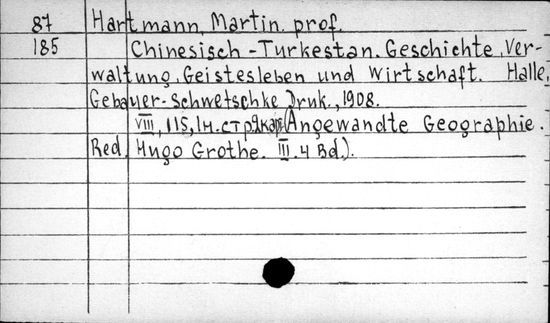 87 Hartmann, Martin. prof.
185 Chinesisch-Turkestan. Geschichte, Ver-
waltung, Geistesleben und Wirtschaft. Halle,
Gebauer-Schwetschke Druk., 1908.
VIII, 115, 1н. стр. (Angewandte Geographie.
Red. Hugo Grothe. III. 4 Bd.).